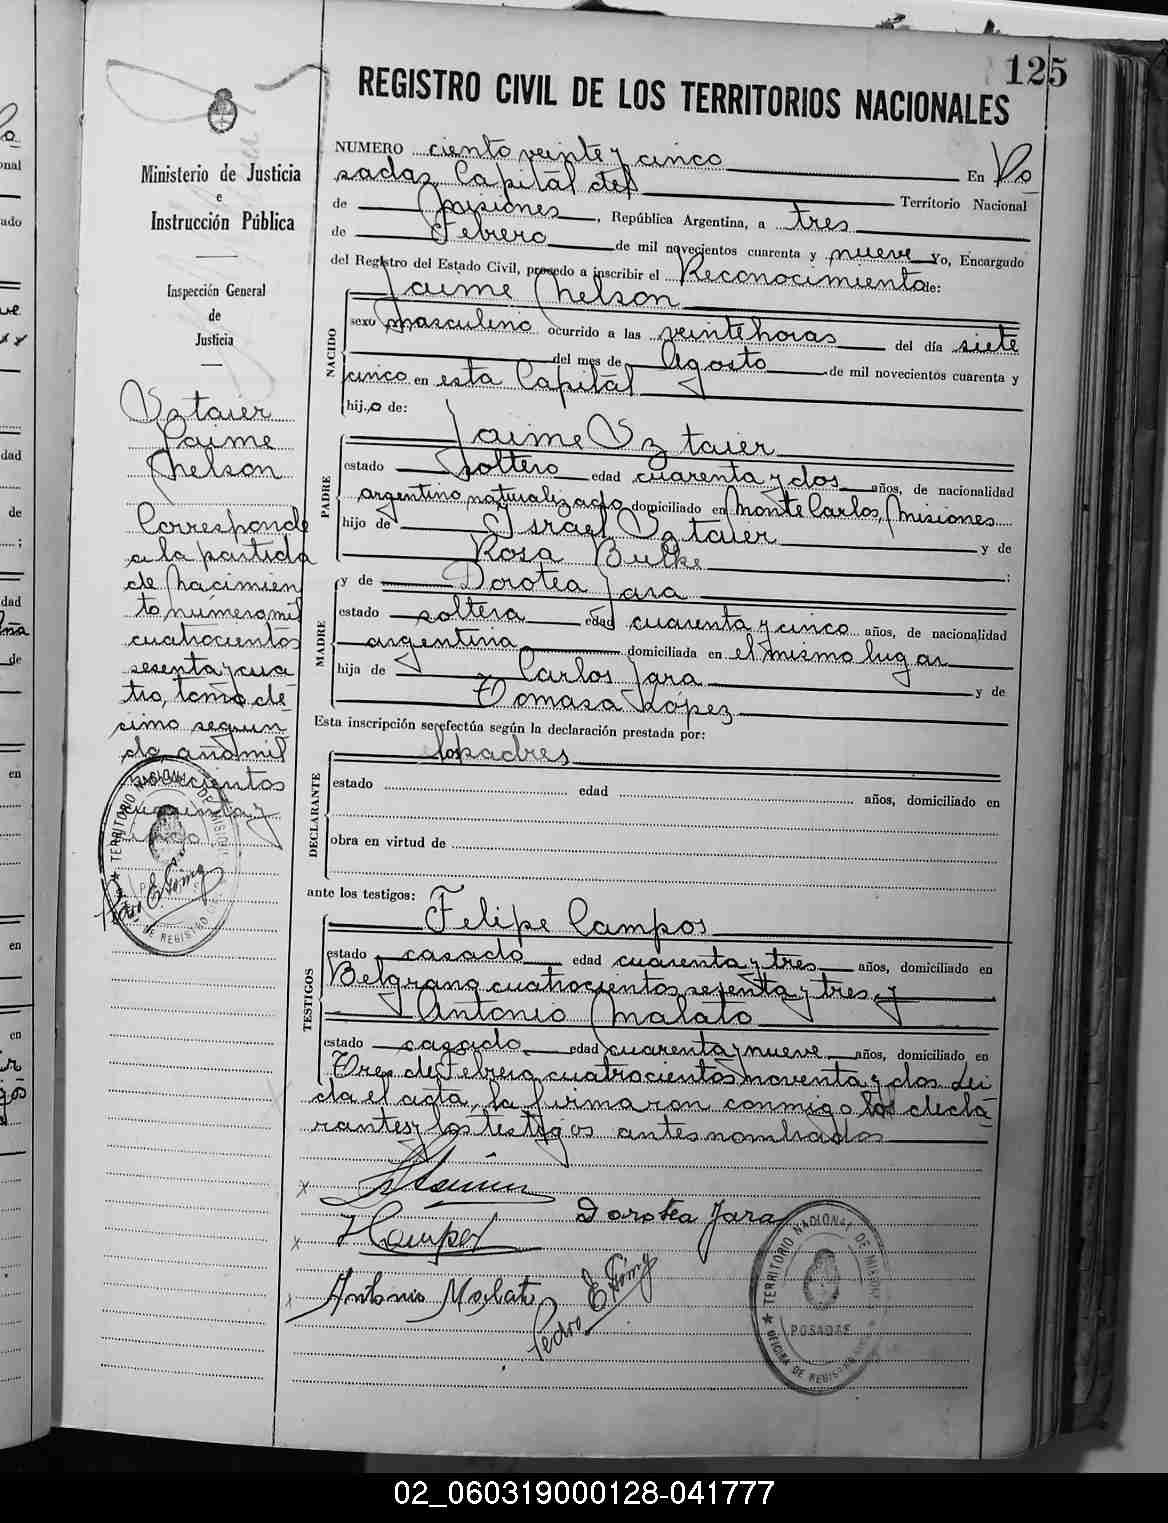 125
REGISTRO CIVIL DE LOS TERRITORIOS NACIONALES
Ministerio de Justicia
e
Instrucción Pública
Inspección General
de
Justicia
Uztaier
Jaime
Nelson
Corresponde
a la partida
de nacimien
to número mil
cuatrocientos
sesenta y cua
tro, tomo dé
cimo segun
do, año mil
novecientos
cuarenta y
cinco
NUMERO ciento veinte y cinco En Po
sadas, Capital del Territorio Nacional
de Misiones, República Argentina, a tres
de Febrero de mil novecientos cuarenta y nueve Yo, Encargado
del Registro del Estado Civil, procedo a inscribir el Reconocimiento de:
NACIDO
Jaime Nelson
sexo masculino ocurrido a las veinte horas del día siete
del mes de Agosto de mil novecientos cuarenta y
cinco en esta Capital
hijo de:
PADRE
Jaime Uztaier
estado soltero edad cuarenta y dos años, de nacionalidad
argentino naturalizado domiciliado en Monte Carlos, Misiones
hijo de Israel Uztaier y de
Rosa Bulke ;
MADRE
y de Dorotea Jara
estado soltera edad cuarenta y cinco años, de nacionalidad
argentina domiciliada en el mismo lugar
hija de Carlos Jara y de
Tomasa López
Esta inscripción se efectúa según la declaración prestada por:
DECLARANTE
los padres
estado edad años, domiciliado en
obra en virtud de
ante los testigos:
TESTIGOS
Felipe Campos
estado casado edad cuarenta y tres años, domiciliado en
Belgrano cuatrocientos sesenta y tres y
Antonio Malato
estado casado edad cuarenta y nueve años, domiciliado en
Tres de Febrero cuatrocientos noventa y dos Leí
da el acta, la firmaron conmigo los decla
rantes y los testigos antes nombrados
Dorotea Jara
FCampos
Antonio Malato
Pedro E Gómez
TERRITORIO NACIONAL DE MISIONES
POSADAS
OFICINA DE REGISTRO
TERRITORIO NACIONAL DE MISIONES
DE REGISTRO
Pedro E Gómez
02_060319000128-041777